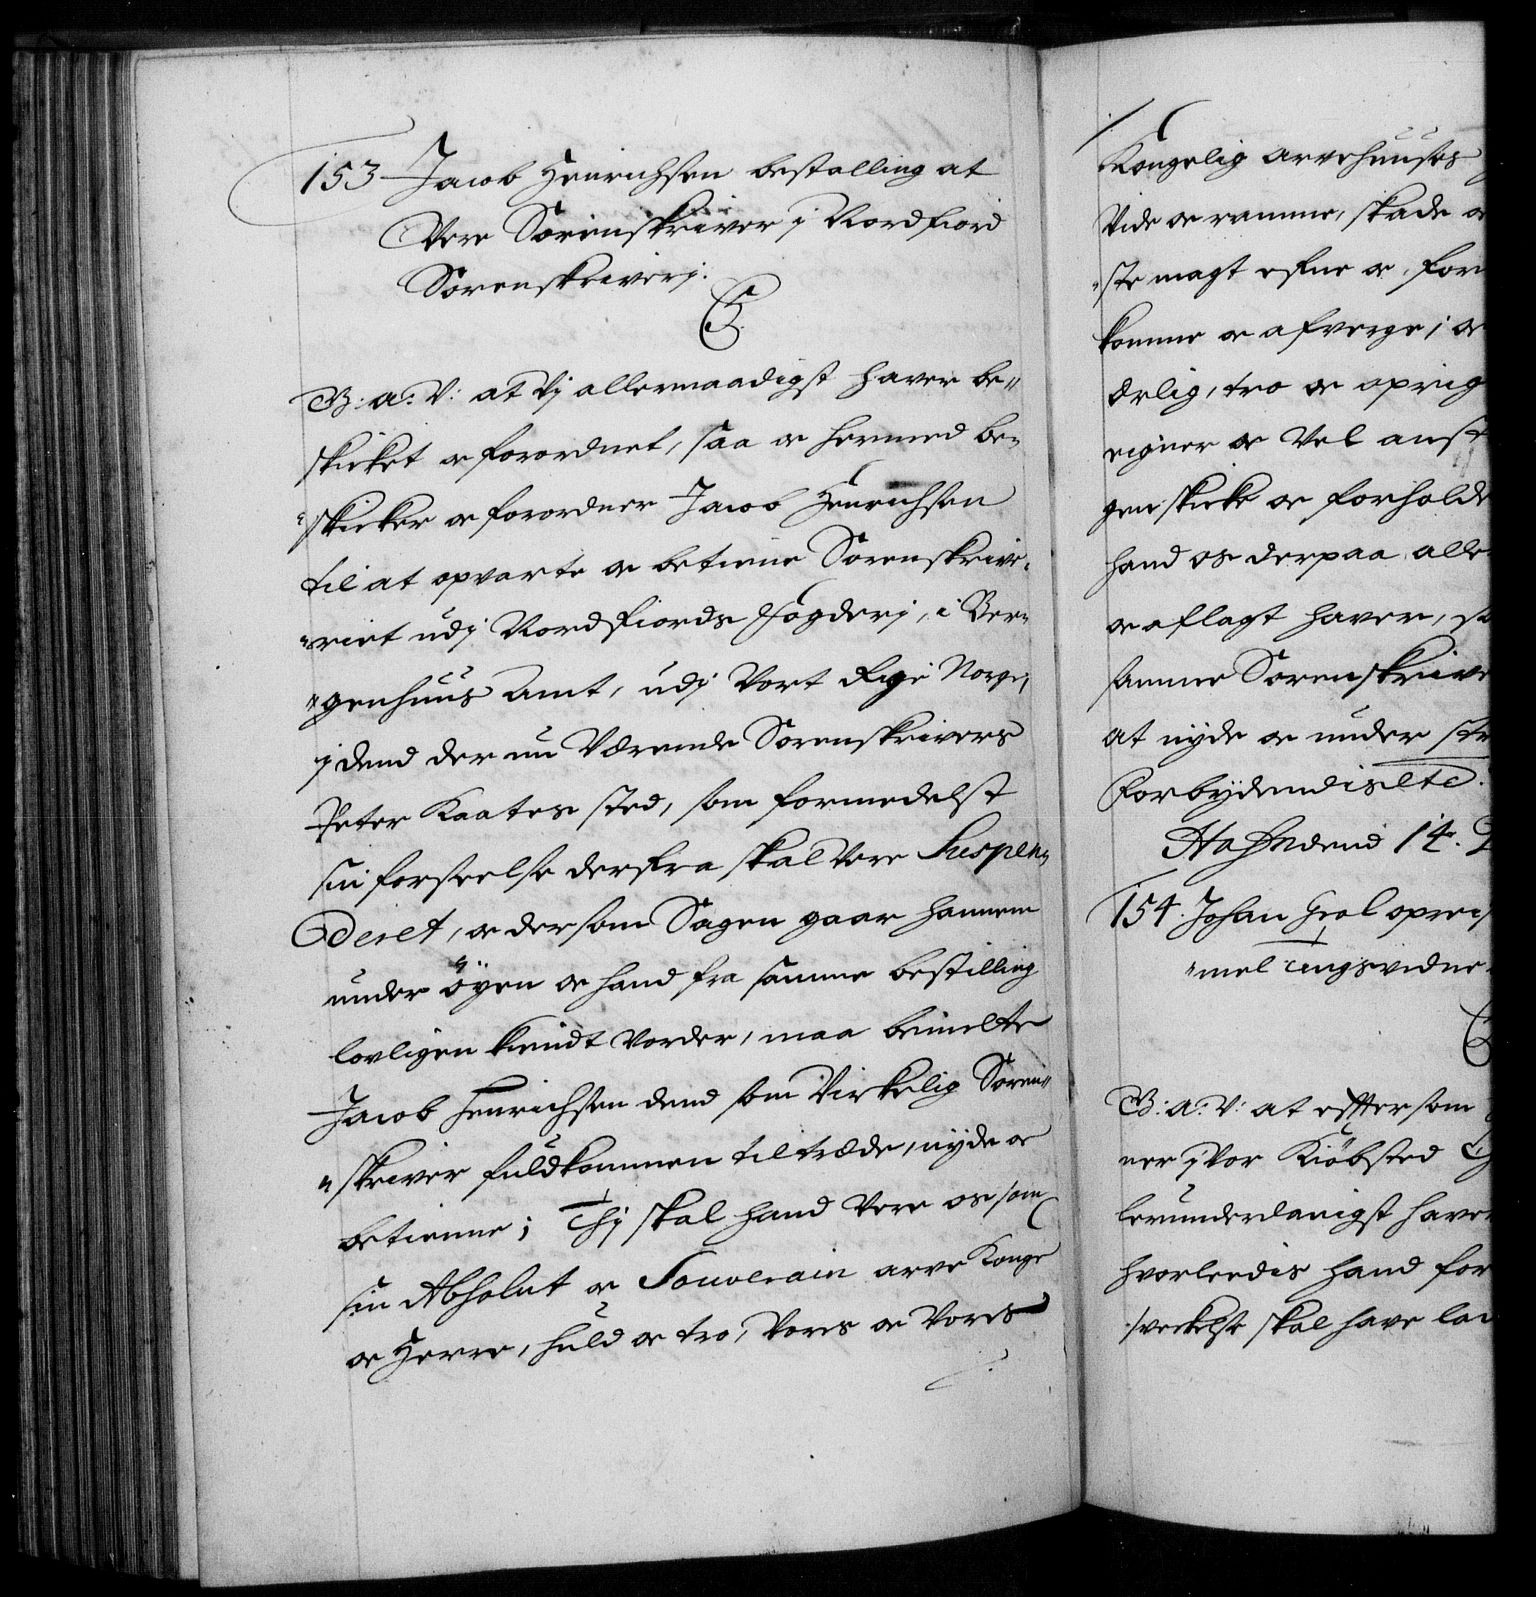 153 Jacob Henrichsen bestalling at
Vere Sorenskriver j Nordfiord
Sorenskriverj.
C5.
G: a: V: at Vj allernaadigst haver be„
skicket oc forordnet, saa oc hermed be„
„skicker oc forordner Jacob Henrichsen
til at opvarte oc betiene Sorenskrive„
„riet udj Nordfiords Fogderj, i Ber„
„genhuus Amt, udj Vort Rige Norge,
j dend der nu Værende Sorenskrivers
Peter Kaates sted, som formedelst
sin forseelse derfra skal Vere Suspen„
deret, oc dersom Sagen gaar hannem
under öyen oc hand fra samme bestilling
lovligen kiendt vorder, maa bemelte
Jacob Henrichsen dend som Virkelig Soren„
„skriver fuldkommen tiltræde, nyde oc
betienne; Thj skal hand Vere os som
sin Absolut oc Souverain arve Konge
oc Herre, huld oc tro, Vores oc Vores
Kongelig arvehuuses
Vide oc ramme, skade oc
„ste magt efne oc, for
komme oc afverge; oc
ærlig, tro oc oprig
eigner oc Vel anst
gen skicke oc forholde
hand os derpaa aller
oc aflagt haver, sa
samme Sorenskrive
at nyde oc under str
Forbydendis etc.
Hafn dend 14.
154. Johan opreis
„mel tingsvidne
C
G: a: V: at effter som
ner j Vor Kiöbsted
lerunderdanigst haver
hvorledis hand for
sverkelse skal have lad